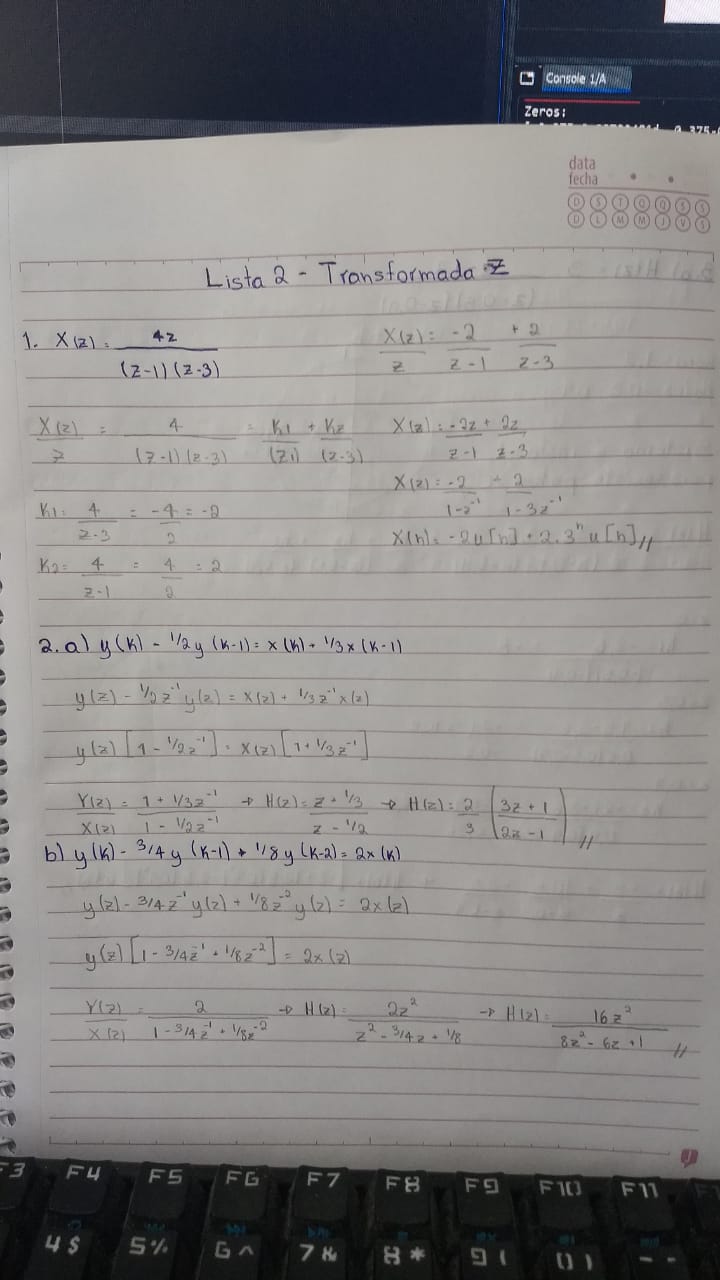 Console 1/A
Zeros:
data
fecha
D S T Q Q S S
D L M M J V S
Lista 2 - Transformada Z
1. X(z) = 4z / (z-1)(z-3)
X(z)/z = 4 / (z-1)(z-3) = K1/(z1) + K2/(z-3)
K1 = 4/z-3 = -4/2 = -2
K2 = 4/z-1 = 4/2 = 2
X(z)/z = -2/z-1 + 2/z-3
X(z) = -2z/z-1 + 2z/z-3
X(z) = -2/1-z⁻¹ + 2/1-3z⁻¹
X(n) = -2u[n] + 2.3ⁿu[n]//
2. a) y(k) - 1/2y(k-1) = x(k) + 1/3x(k-1)
y(z) - 1/2z⁻¹y(z) = X(z) + 1/3z⁻¹x(z)
y(z)[1 - 1/2z⁻¹] = X(z)[1 + 1/3z⁻¹]
Y(z)/X(z) = 1 + 1/3z⁻¹ / 1 - 1/2z⁻¹ → H(z) = z + 1/3 / z - 1/2 → H(z) = 2/3 (3z + 1 / 2z - 1)//
b) y(k) - 3/4y(k-1) + 1/8y(k-2) = 2x(k)
y(z) - 3/4z⁻¹y(z) + 1/8z⁻²y(z) = 2x(z)
y(z)[1 - 3/4z⁻¹ + 1/8z⁻²] = 2x(z)
Y(z)/X(z) = 2 / 1 - 3/4z⁻¹ + 1/8z⁻² → H(z) = 2z² / z² - 3/4z + 1/8 → H(z) = 16z² / 8z² - 6z + 1 //
F3 F4 F5 F6 F7 F8 F9 F10 F11
4 $ 5 % 6 ^ 7 8 * 9 ( 0 ) - -